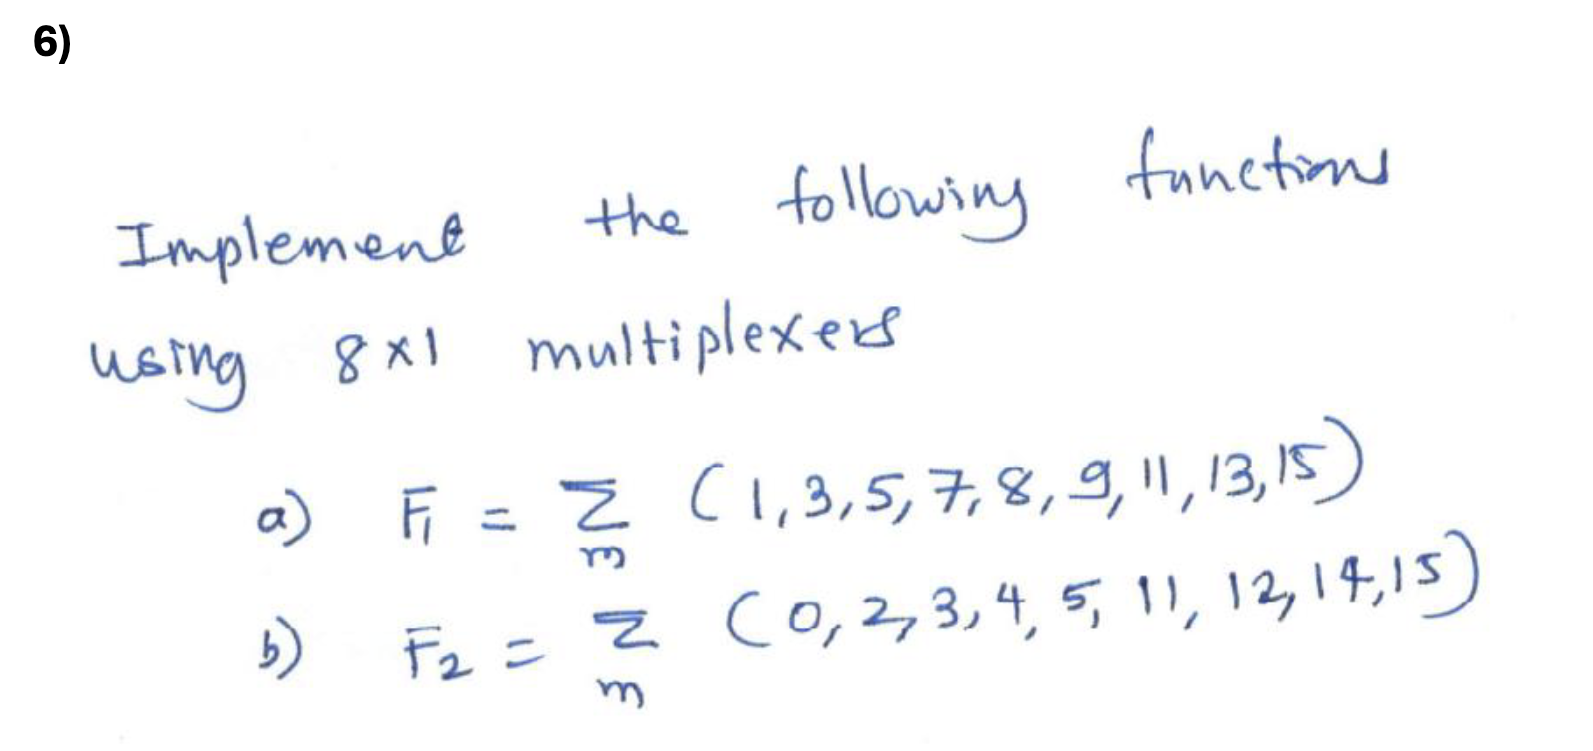 6)
Implement the following functions
using 8x1 multiplexers
a) F₁ = Σm (1,3,5,7,8,9,11,13,15)
b) F₂ = Σm (0,2,3,4,5,11,12,14,15)